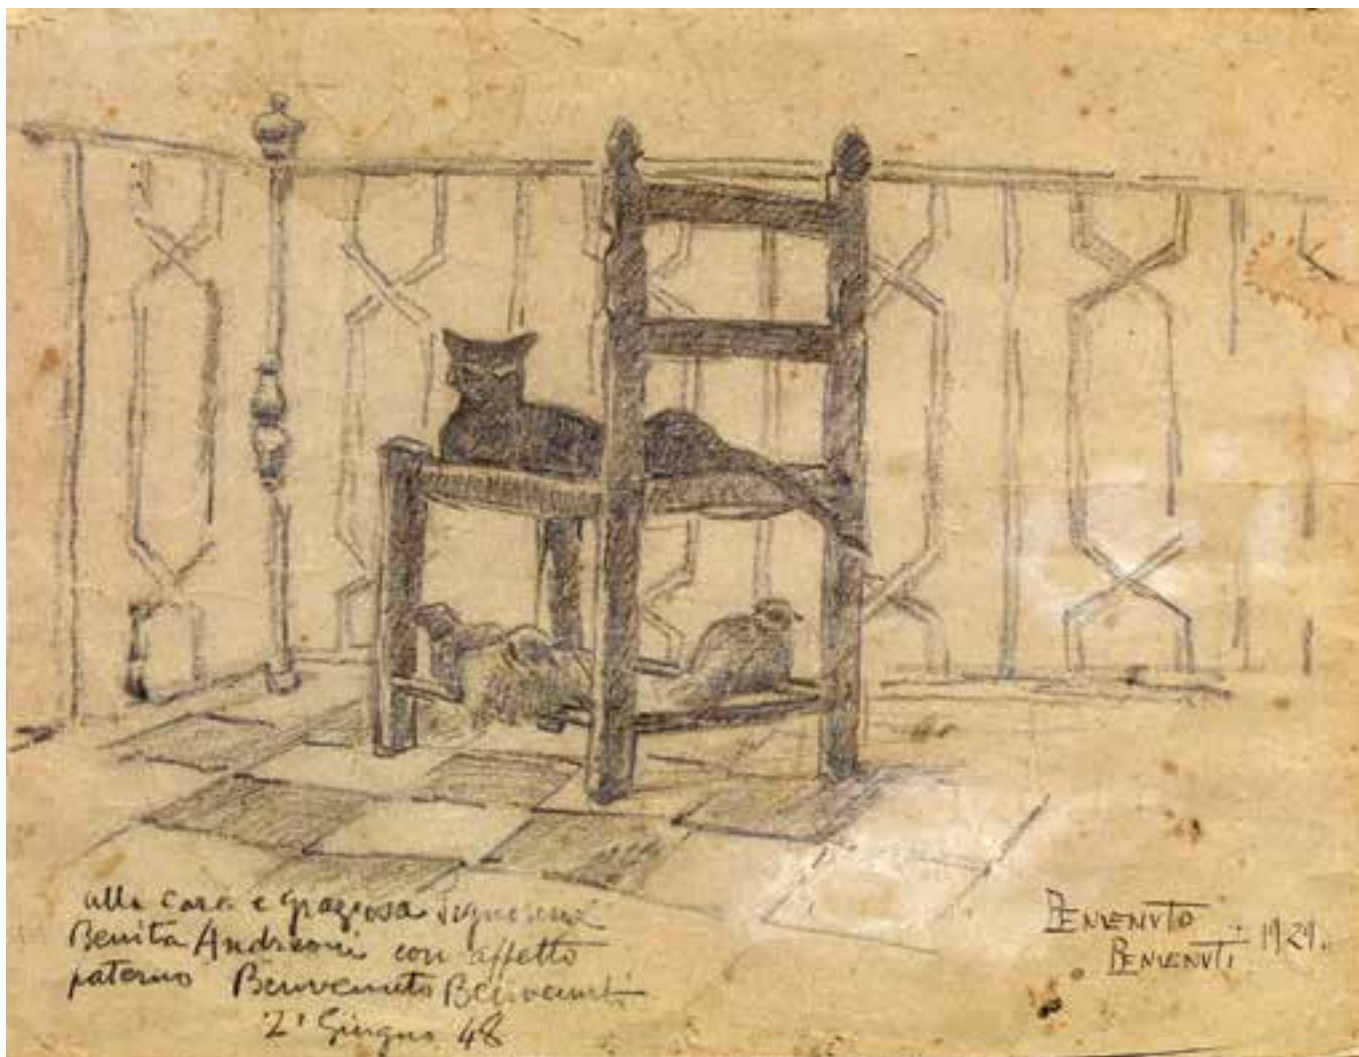 alla cara e graziosa Signorina
Benita Andreoni con affetto
paterno Benvenuto Benvenuti
2 Giugno 48
BENVENUTO
BENVENUTI 1929.